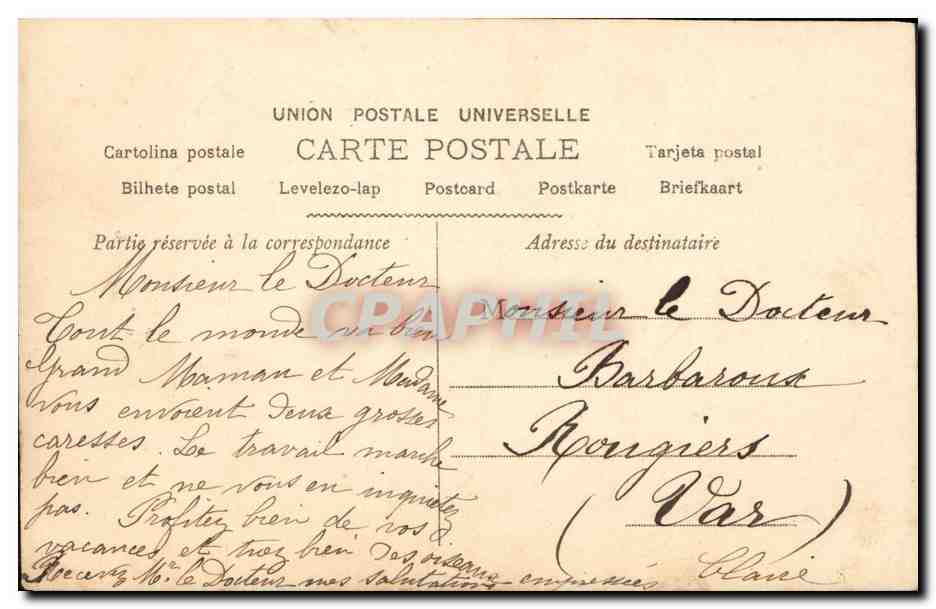 UNION POSTALE UNIVERSELLE
Cartolina postale CARTE POSTALE Tarjeta postal
Bilhete postal Levelezo-lap Postcard Postkarte Briefkaart
Partie réservée à la correspondance
Monsieur le Docteur
Tout le monde va bien
Grand Maman et Madame
vous envoient deux grosses
caresses. Le travail marche
bien et ne vous en inquietez
pas. Profitez bien de vos
vacances et tuez bien des oiseaux
Recevez Mr le Docteur mes salutations empressées
Claire
Adresse du destinataire
Monsieur le Docteur
Barbaroux
Rougiers
(Var)
CPAPHIL